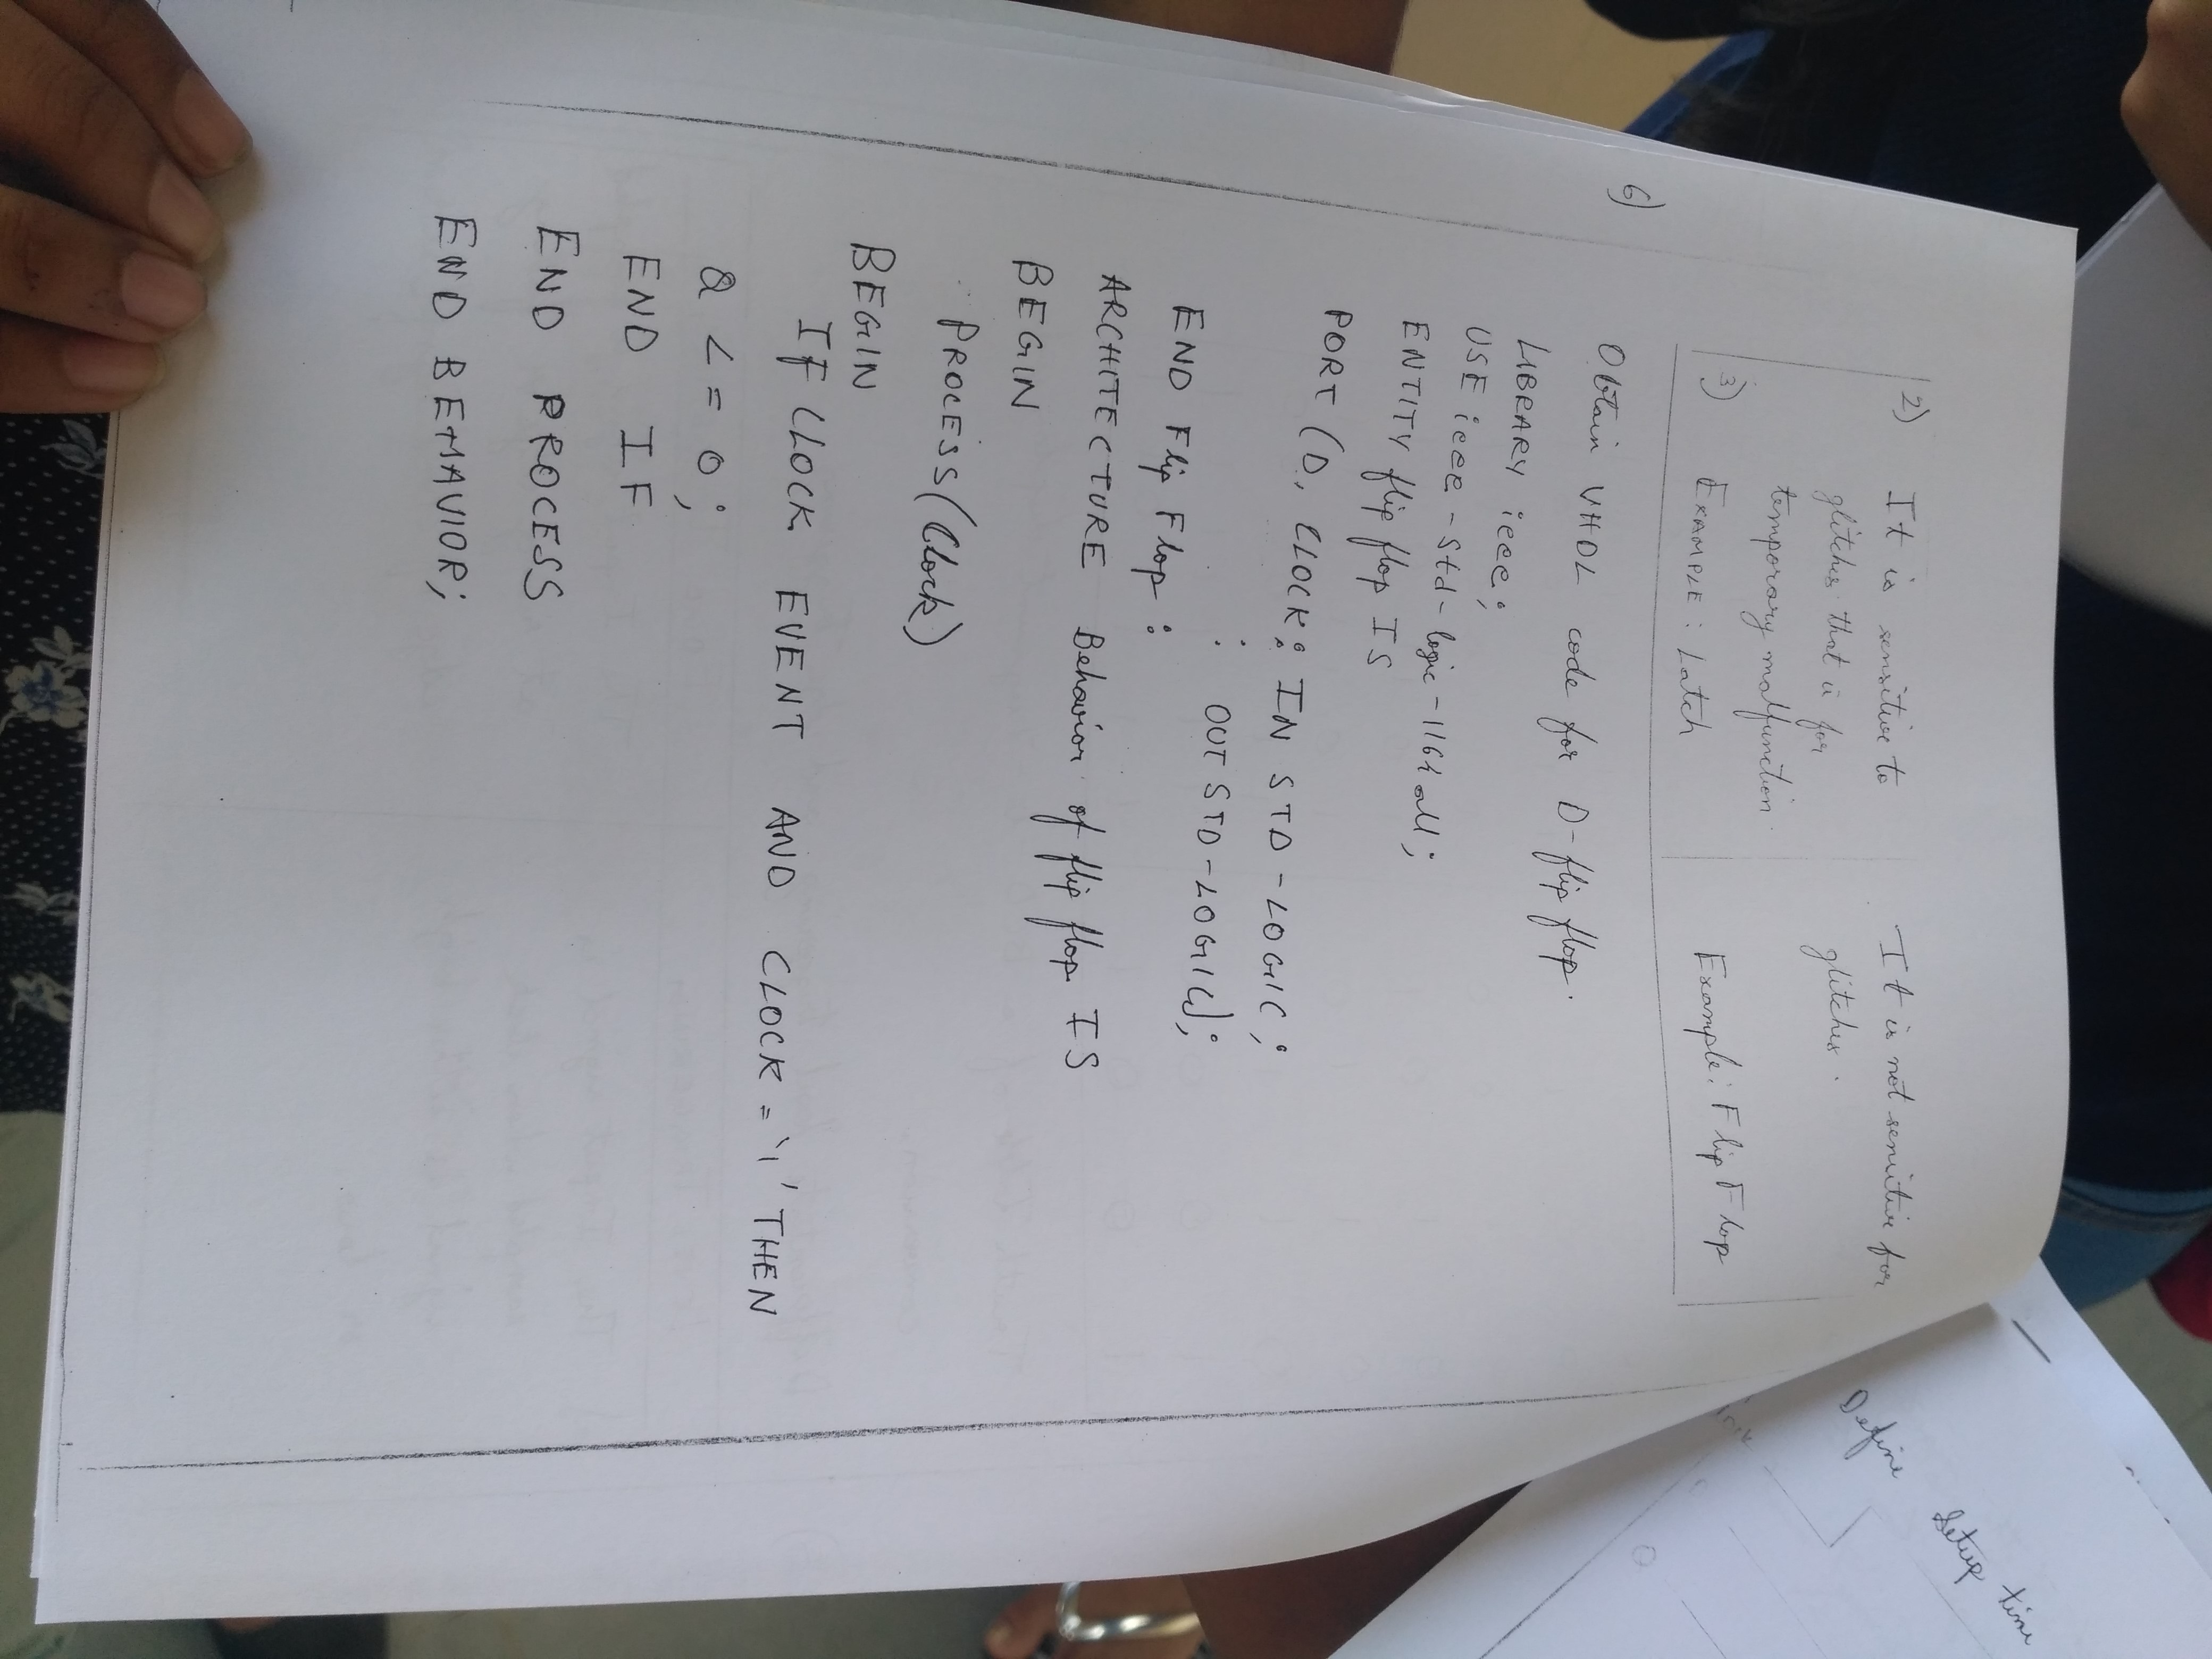 2) It is sensitive to It is not sensitive for
glitches that is for glitches.
temporary malfunction.
3) EXAMPLE: Latch Example: Flip Flop
6) Obtain VHDL code for D-flip flop.
LIBRARY ieee;
USE ieee-std-logic-1164 all;
ENTITY flip flop IS
PORT (D, CLOCK: IN STD-LOGIC;
: OUT STD-LOGIC);
END Flip Flop:
ARCHITECTURE Behavior of flip flop IS
BEGIN
PROCESS(Clock)
BEGIN
IF CLOCK EVENT AND CLOCK = '1' THEN
Q <= 0;
END IF
END PROCESS
END BEHAVIOR;
Define Setup time